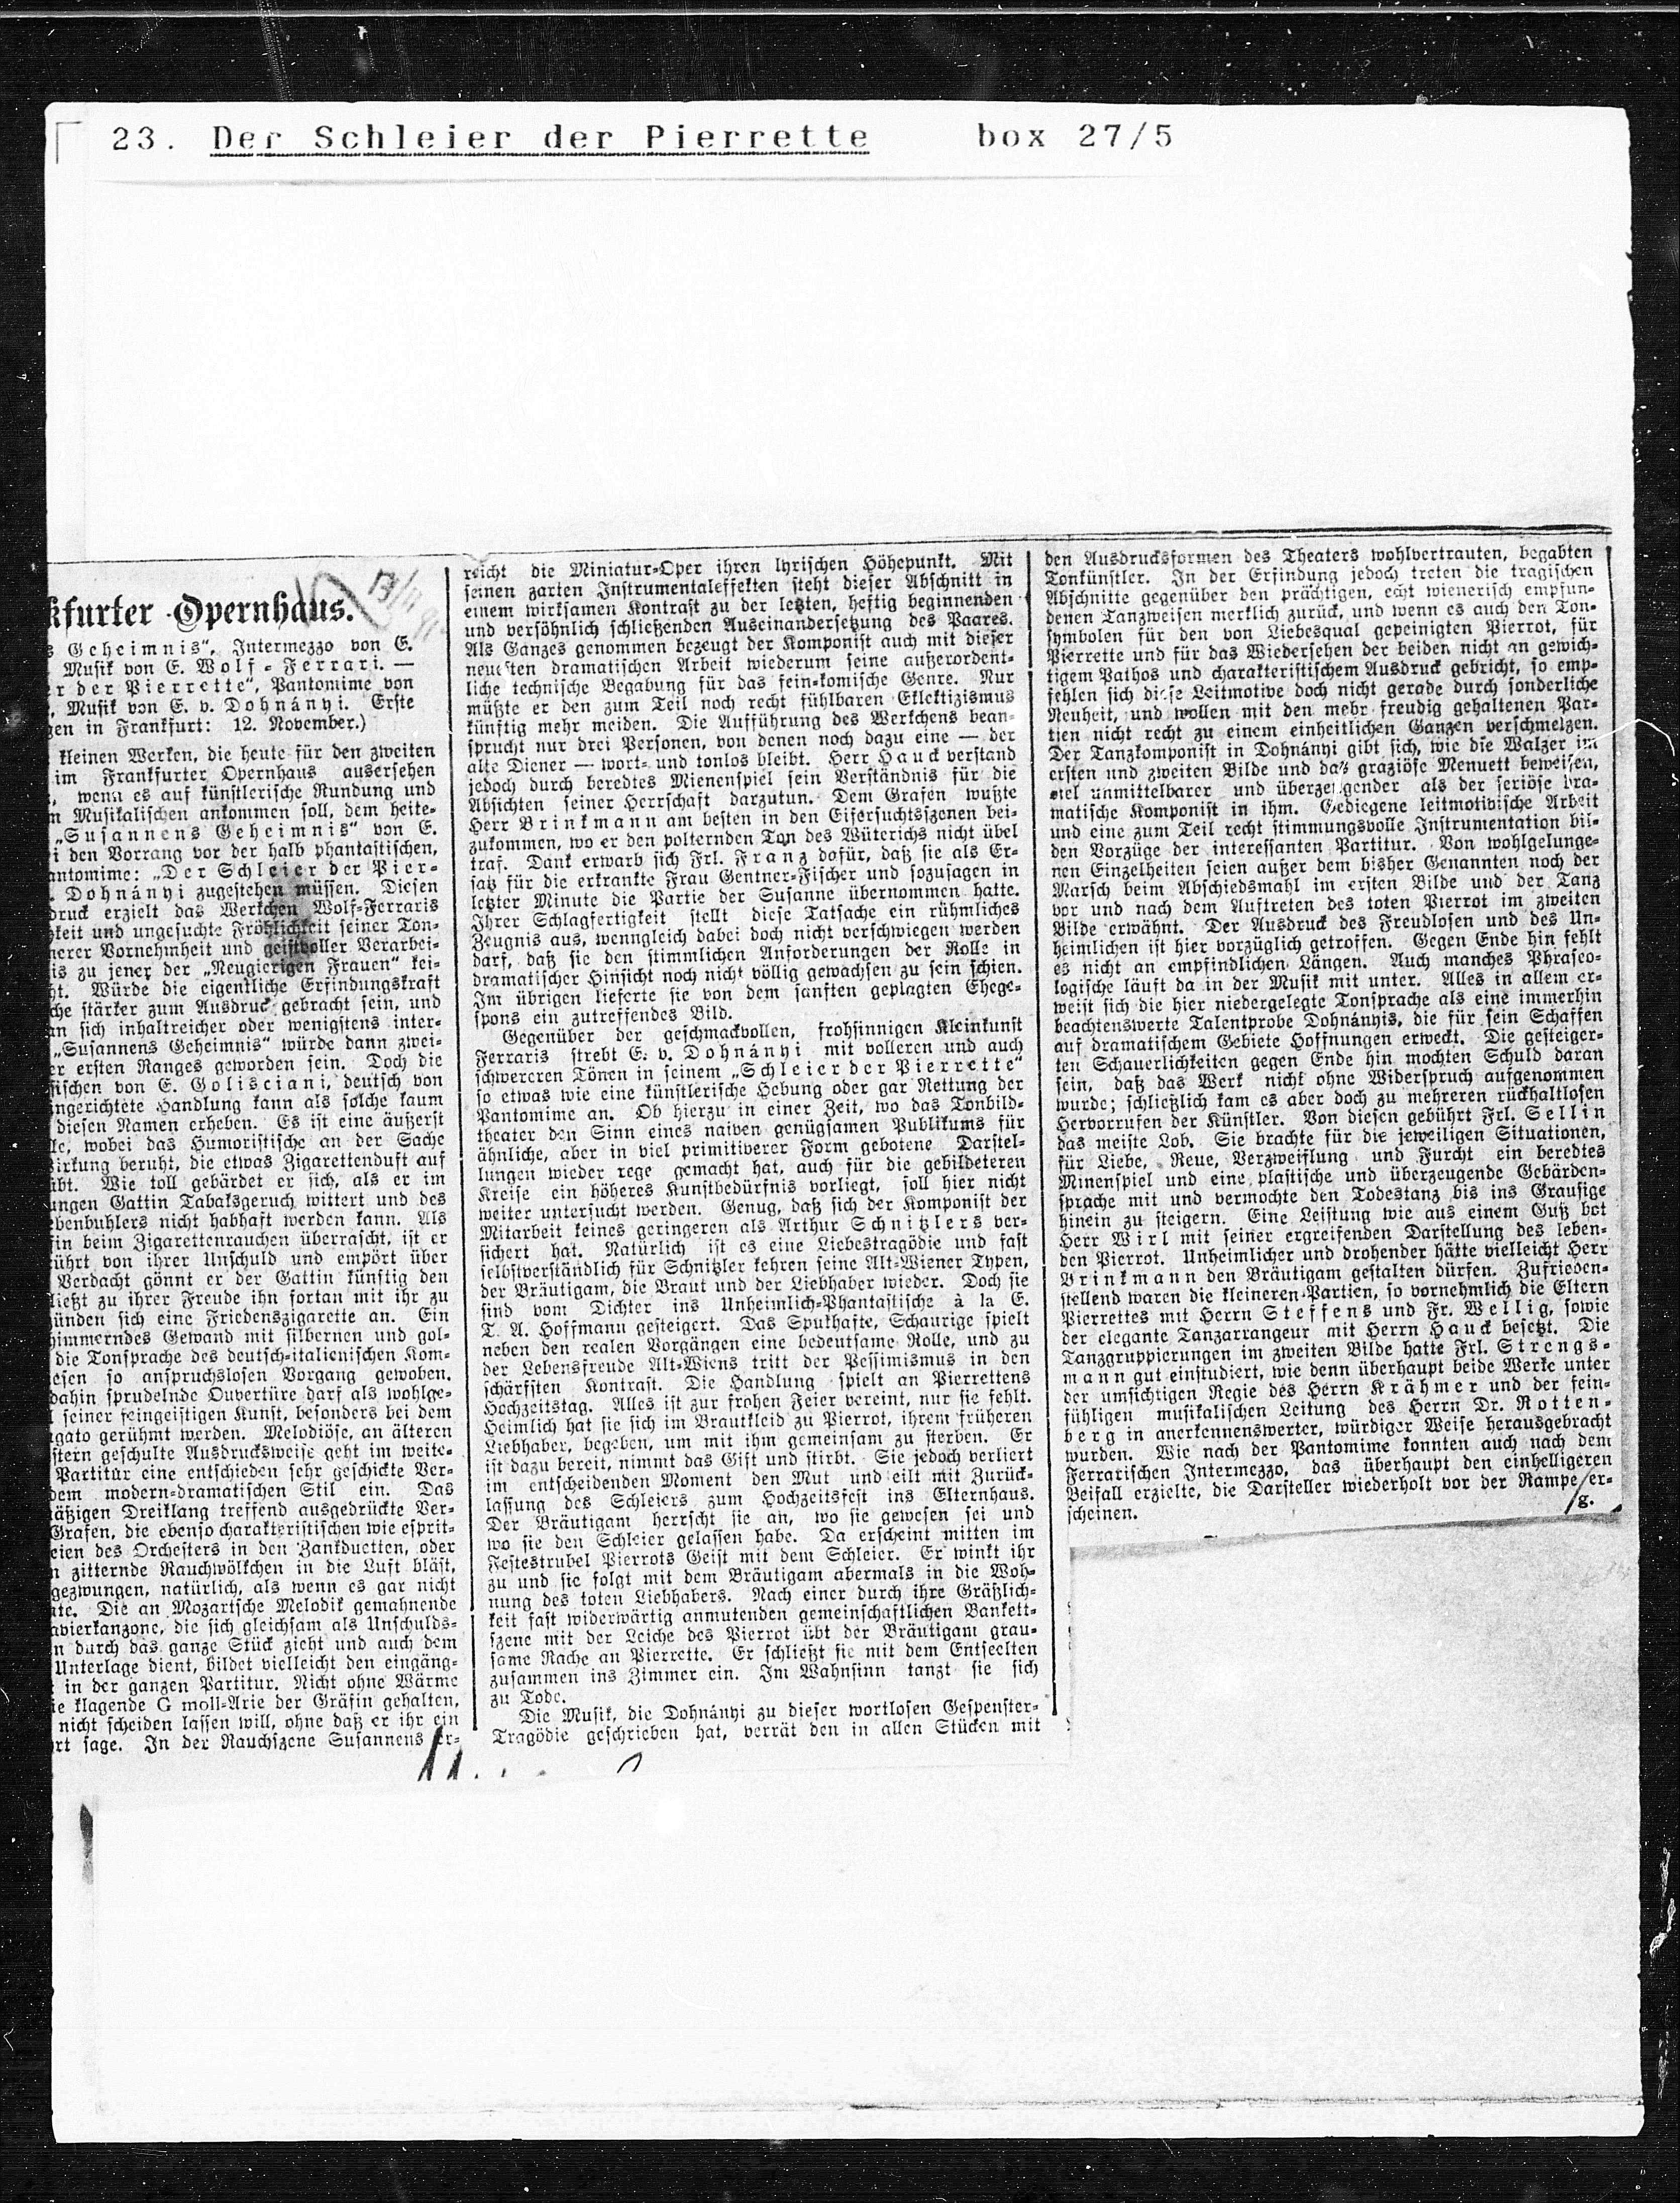 23. Der Schleier der Pierrette box 27/5
13/11
kfurter Opernhaus.
s Geheimnis", Intermezzo von E.
Musik von E. Wolf-Ferrari. —
er der Pierrette", Pantomime von
. Musik von E. v. Dohnányi. Erste
gen in Frankfurt: 12. November.)
kleinen Werken, die heute für den zweiten
im Frankfurter Opernhaus ausersehen
, wenn es auf künstlerische Rundung und
n Musikalischen ankommen soll, dem heite-
„Susannens Geheimnis" von E.
i den Vorrang vor der halb phantastischen,
antomime: „Der Schleier der Pier-
. Dohnányi zugestehen müssen. Diesen
druck erzielt das Werkchen Wolf-Ferraris
keit und ungesuchte Fröhlichkeit seiner Ton-
nerer Vornehmheit und geistvoller Verarbei-
is zu jener der „Neugierigen Frauen" kei-
ht. Würde die eigentliche Erfindungskraft
che stärker zum Ausdruck gebracht sein, und
an sich inhaltreicher oder wenigstens inter-
„Susannens Geheimnis" würde dann zwei-
er ersten Ranges geworden sein. Doch die
ischen von E. Golisciani, deutsch von
ingerichtete Handlung kann als solche kaum
diesen Namen erheben. Es ist eine äußerst
le, wobei das Humoristische an der Sache
Wirkung beruht, die etwas Zigarettenduft auf
übt. Wie toll gebärdet er sich, als er im
ungen Gattin Tabaksgeruch wittert und des
ebenbuhlers nicht habhaft werden kann. Als
in beim Zigarettenrauchen überrascht, ist er
ührt von ihrer Unschuld und empört über
Verdacht gönnt er der Gattin künftig den
ließt zu ihrer Freude ihn fortan mit ihr zu
ünden sich eine Friedenszigarette an. Ein
himmerndes Gewand mit silbernen und gol-
die Tonsprache des deutsch-italienischen Kom-
esen so anspruchslosen Vorgang gewoben.
dahin sprudelnde Ouvertüre darf als wohlge-
l seiner feingeistigen Kunst, besonders bei dem
gato gerühmt werden. Melodiöse, an älteren
stern geschulte Ausdrucksweise geht im weite-
Partitur eine entschieden sehr geschickte Ver-
dem modern-dramatischen Stil ein. Das
äßigen Dreiklang treffend ausgedrückte Ver-
Grafen, die ebenso charakteristischen wie esprit-
eien des Orchesters in den Zankduetten, oder
n zitternde Rauchwölkchen in die Luft bläst,
gezwungen, natürlich, als wenn es gar nicht
nte. Die an Mozartsche Melodik gemahnende
avierkanzone, die sich gleichsam als Unschulds-
n durch das ganze Stück zieht und auch dem
Unterlage dient, bildet vielleicht den eingäng-
in der ganzen Partitur. Nicht ohne Wärme
ie klagende G moll-Arie der Gräfin gehalten,
nicht scheiden lassen will, ohne daß er ihr ein
rt sage. In der Rauchszene Susannens er-
reicht die Miniatur-Oper ihren lyrischen Höhepunkt. Mit
seinen zarten Instrumentaleffekten steht dieser Abschnitt in
einem wirksamen Kontrast zu der letzten, heftig beginnenden
und versöhnlich schließenden Auseinandersetzung des Paares.
Als Ganzes genommen bezeugt der Komponist auch mit dieser
neuesten dramatischen Arbeit wiederum seine außerordent-
liche technische Begabung für das fein-komische Genre. Nur
müßte er den zum Teil noch recht fühlbaren Eklektizismus
künftig mehr meiden. Die Aufführung des Werkchens bean-
sprucht nur drei Personen, von denen noch dazu eine — der
alte Diener — wort- und tonlos bleibt. Herr Hauck verstand
jedoch durch beredtes Mienenspiel sein Verständnis für die
Absichten seiner Herrschaft darzutun. Dem Grafen wußte
Herr Brinkmann am besten in den Eifersuchtsszenen bei-
zukommen, wo er den polternden Ton des Wüterichs nicht übel
traf. Dank erwarb sich Frl. Franz dafür, daß sie als Er-
satz für die erkrankte Frau Gentner-Fischer und sozusagen in
letzter Minute die Partie der Susanne übernommen hatte.
Ihrer Schlagfertigkeit stellt diese Tatsache ein rühmliches
Zeugnis aus, wenngleich dabei doch nicht verschwiegen werden
darf, daß sie den stimmlichen Anforderungen der Rolle in
dramatischer Hinsicht noch nicht völlig gewachsen zu sein schien.
Im übrigen lieferte sie von dem sanften geplagten Ehege-
spons ein zutreffendes Bild.
Gegenüber der geschmackvollen, frohsinnigen Kleinkunst
Ferraris strebt E. v. Dohnányi mit volleren und auch
schwereren Tönen in seinem „Schleier der Pierrette"
so etwas wie eine künstlerische Hebung oder gar Rettung der
Pantomime an. Ob hierzu in einer Zeit, wo das Tonbild-
theater den Sinn eines naiven genügsamen Publikums für
ähnliche, aber in viel primitiverer Form gebotene Darstel-
lungen wieder rege gemacht hat, auch für die gebildeteren
Kreise ein höheres Kunstbedürfnis vorliegt, soll hier nicht
weiter untersucht werden. Genug, daß sich der Komponist der
Mitarbeit keines geringeren als Arthur Schnitzlers ver-
sichert hat. Natürlich ist es eine Liebestragödie und fast
selbstverständlich für Schnitzler kehren seine Alt-Wiener Typen,
der Bräutigam, die Braut und der Liebhaber wieder. Doch sie
sind vom Dichter ins Unheimlich-Phantastische à la E.
T. A. Hoffmann gesteigert. Das Spukhafte, Schaurige spielt
neben den realen Vorgängen eine bedeutsame Rolle, und zu
der Lebensfreude Alt-Wiens tritt der Pessimismus in den
schärfsten Kontrast. Die Handlung spielt an Pierrettens
Hochzeitstag. Alles ist zur frohen Feier vereint, nur sie fehlt.
Heimlich hat sie sich im Brautkleid zu Pierrot, ihrem früheren
Liebhaber, begeben, um mit ihm gemeinsam zu sterben. Er
ist dazu bereit, nimmt das Gift und stirbt. Sie jedoch verliert
im entscheidenden Moment den Mut und eilt mit Zurück-
lassung des Schleiers zum Hochzeitsfest ins Elternhaus.
Der Bräutigam herrscht sie an, wo sie gewesen sei und
wo sie den Schleier gelassen habe. Da erscheint mitten im
Festestrubel Pierrots Geist mit dem Schleier. Er winkt ihr
zu und sie folgt mit dem Bräutigam abermals in die Woh-
nung des toten Liebhabers. Nach einer durch ihre Gräßlich-
keit fast widerwärtig anmutenden gemeinschaftlichen Bankett-
szene mit der Leiche des Pierrot übt der Bräutigam grau-
same Rache an Pierrette. Er schließt sie mit dem Entseelten
zusammen ins Zimmer ein. Im Wahnsinn tanzt sie sich
zu Tode.
Die Musik, die Dohnányi zu dieser wortlosen Gespenster-
Tragödie geschrieben hat, verrät den in allen Stücken mit
den Ausdrucksformen des Theaters wohlvertrauten, begabten
Tonkünstler. In der Erfindung jedoch treten die tragischen
Abschnitte gegenüber den prächtigen, echt wienerisch empfun-
denen Tanzweisen merklich zurück, und wenn es auch den Ton-
symbolen für den von Liebesqual gepeinigten Pierrot, für
Pierrette und für das Wiedersehen der beiden nicht an gewich-
tigem Pathos und charakteristischem Ausdruck gebricht, so emp-
fehlen sich diese Leitmotive doch nicht gerade durch sonderliche
Neuheit, und wollen mit den mehr freudig gehaltenen Par-
tien nicht recht zu einem einheitlichen Ganzen verschmelzen.
Der Tanzkomponist in Dohnányi gibt sich, wie die Walzer im
ersten und zweiten Bilde und das graziöse Menuett beweisen,
viel unmittelbarer und überzeugender als der seriöse dra-
matische Komponist in ihm. Gediegene leitmotivische Arbeit
und eine zum Teil recht stimmungsvolle Instrumentation bil-
den Vorzüge der interessanten Partitur. Von wohlgelunge-
nen Einzelheiten seien außer dem bisher Genannten noch der
Marsch beim Abschiedsmahl im ersten Bilde und der Tanz
vor und nach dem Auftreten des toten Pierrot im zweiten
Bilde erwähnt. Der Ausdruck des Freudlosen und des Un-
heimlichen ist hier vorzüglich getroffen. Gegen Ende hin fehlt
es nicht an empfindlichen Längen. Auch manches Phraseo-
logische läuft da in der Musik mit unter. Alles in allem er-
weist sich die hier niedergelegte Tonsprache als eine immerhin
beachtenswerte Talentprobe Dohnányis, die für sein Schaffen
auf dramatischem Gebiete Hoffnungen erweckt. Die gesteiger-
ten Schauerlichkeiten gegen Ende hin mochten Schuld daran
sein, daß das Werk nicht ohne Widerspruch aufgenommen
wurde; schließlich kam es aber doch zu mehreren rückhaltlosen
Hervorrufen der Künstler. Von diesen gebührt Frl. Sellin
das meiste Lob. Sie brachte für die jeweiligen Situationen,
für Liebe, Reue, Verzweiflung und Furcht ein beredtes
Minenspiel und eine plastische und überzeugende Gebärden-
sprache mit und vermochte den Todestanz bis ins Grausige
hinein zu steigern. Eine Leistung wie aus einem Guß bot
Herr Wirl mit seiner ergreifenden Darstellung des leben-
den Pierrot. Unheimlicher und drohender hätte vielleicht Herr
Brinkmann den Bräutigam gestalten dürfen. Zufrieden-
stellend waren die kleineren Partien, so vornehmlich die Eltern
Pierrettes mit Herrn Steffens und Fr. Wellig, sowie
der elegante Tanzarrangeur mit Herrn Hauck besetzt. Die
Tanzgruppierungen im zweiten Bilde hatte Frl. Strengs-
mann gut einstudiert, wie denn überhaupt beide Werke unter
der umsichtigen Regie des Herrn Krähmer und der fein-
fühligen musikalischen Leitung des Herrn Dr. Rotten-
berg in anerkennenswerter, würdiger Weise herausgebracht
wurden. Wie nach der Pantomime konnten auch nach dem
Ferrarischen Intermezzo, das überhaupt den einhelligeren
Beifall erzielte, die Darsteller wiederholt vor der Rampe er-
scheinen. g.